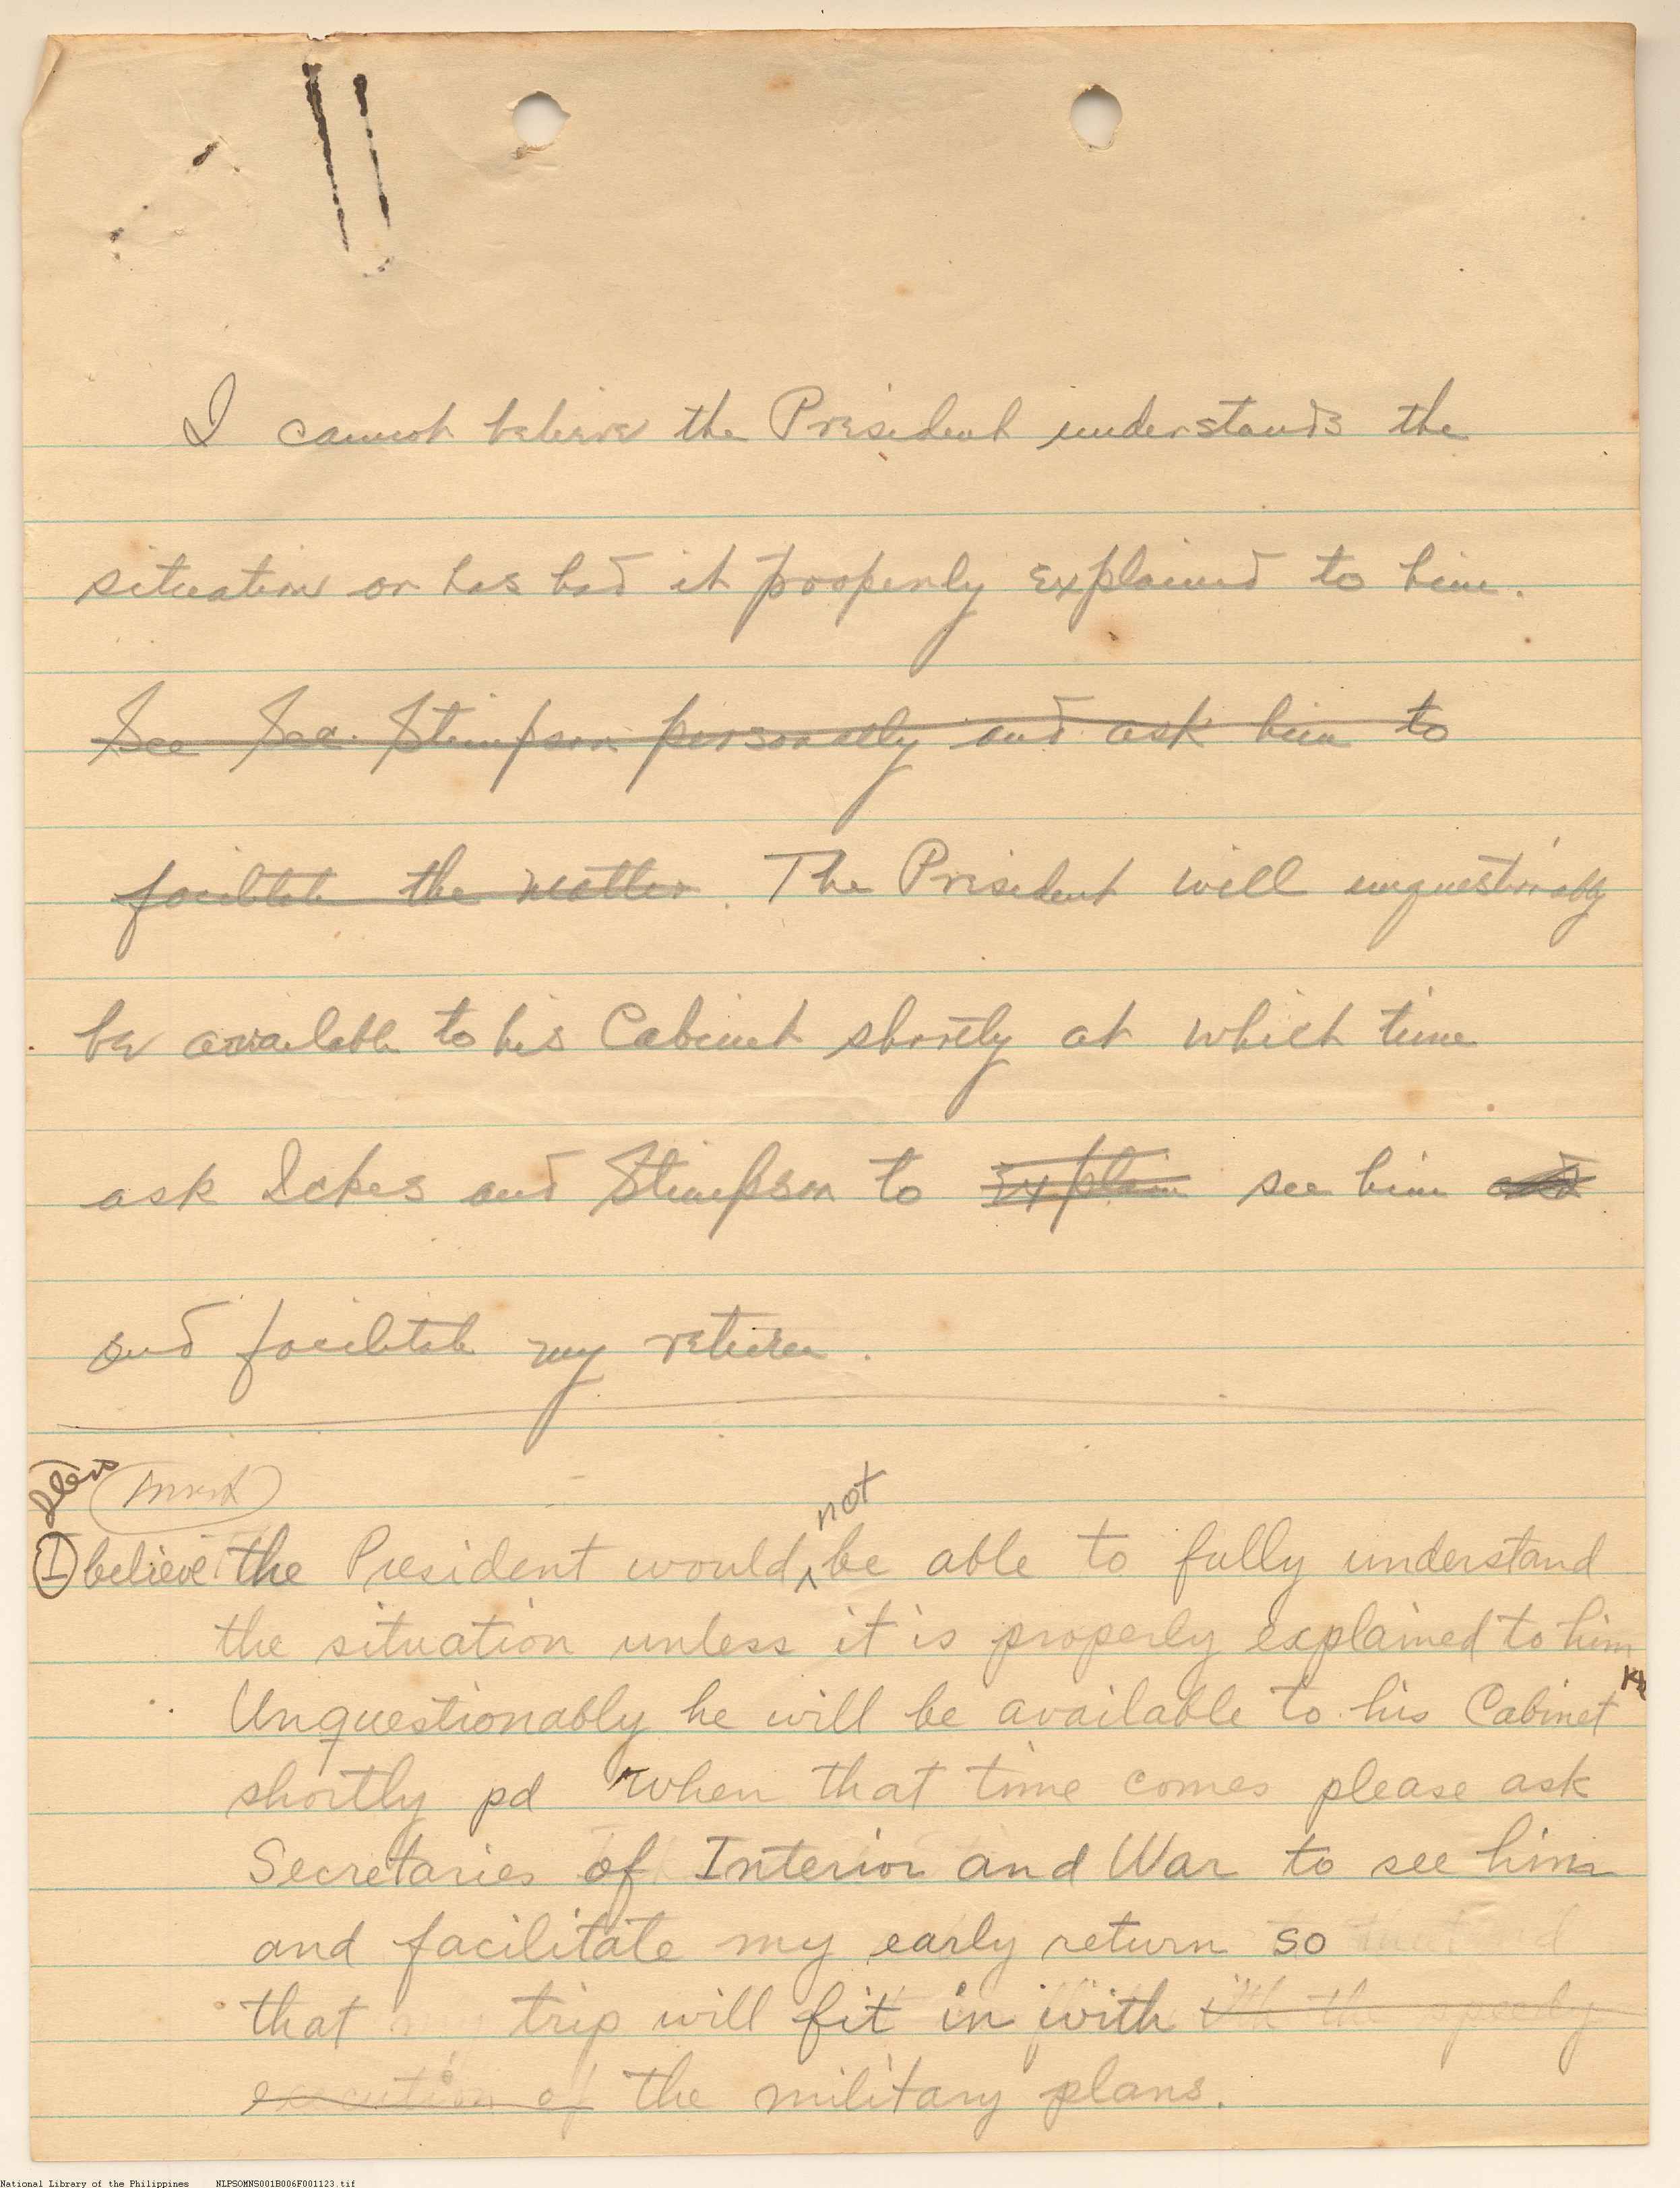 I cannot believe the President understands the
situation or has had it properly explained to him.
See Sec. Stimpson personally and ask him to
facilitate the matter. The President will unquestionably
be available to his Cabinet shortly at which time
ask Ickes and Stimpson to explain see him and
and facilitate my return.
not
I believe the President would be able to fully understand
the situation unless it is properly explained to him
Unquestionably he will be available to his Cabinet
shortly pd When that time comes please ask
Secretaries of Interior and War to see him
and facilitate my early return so
that my trip will fit in with ith the speedy
execution of the military plans.
National Library of the Philippines NLPSOMNS001B006F001123.tif